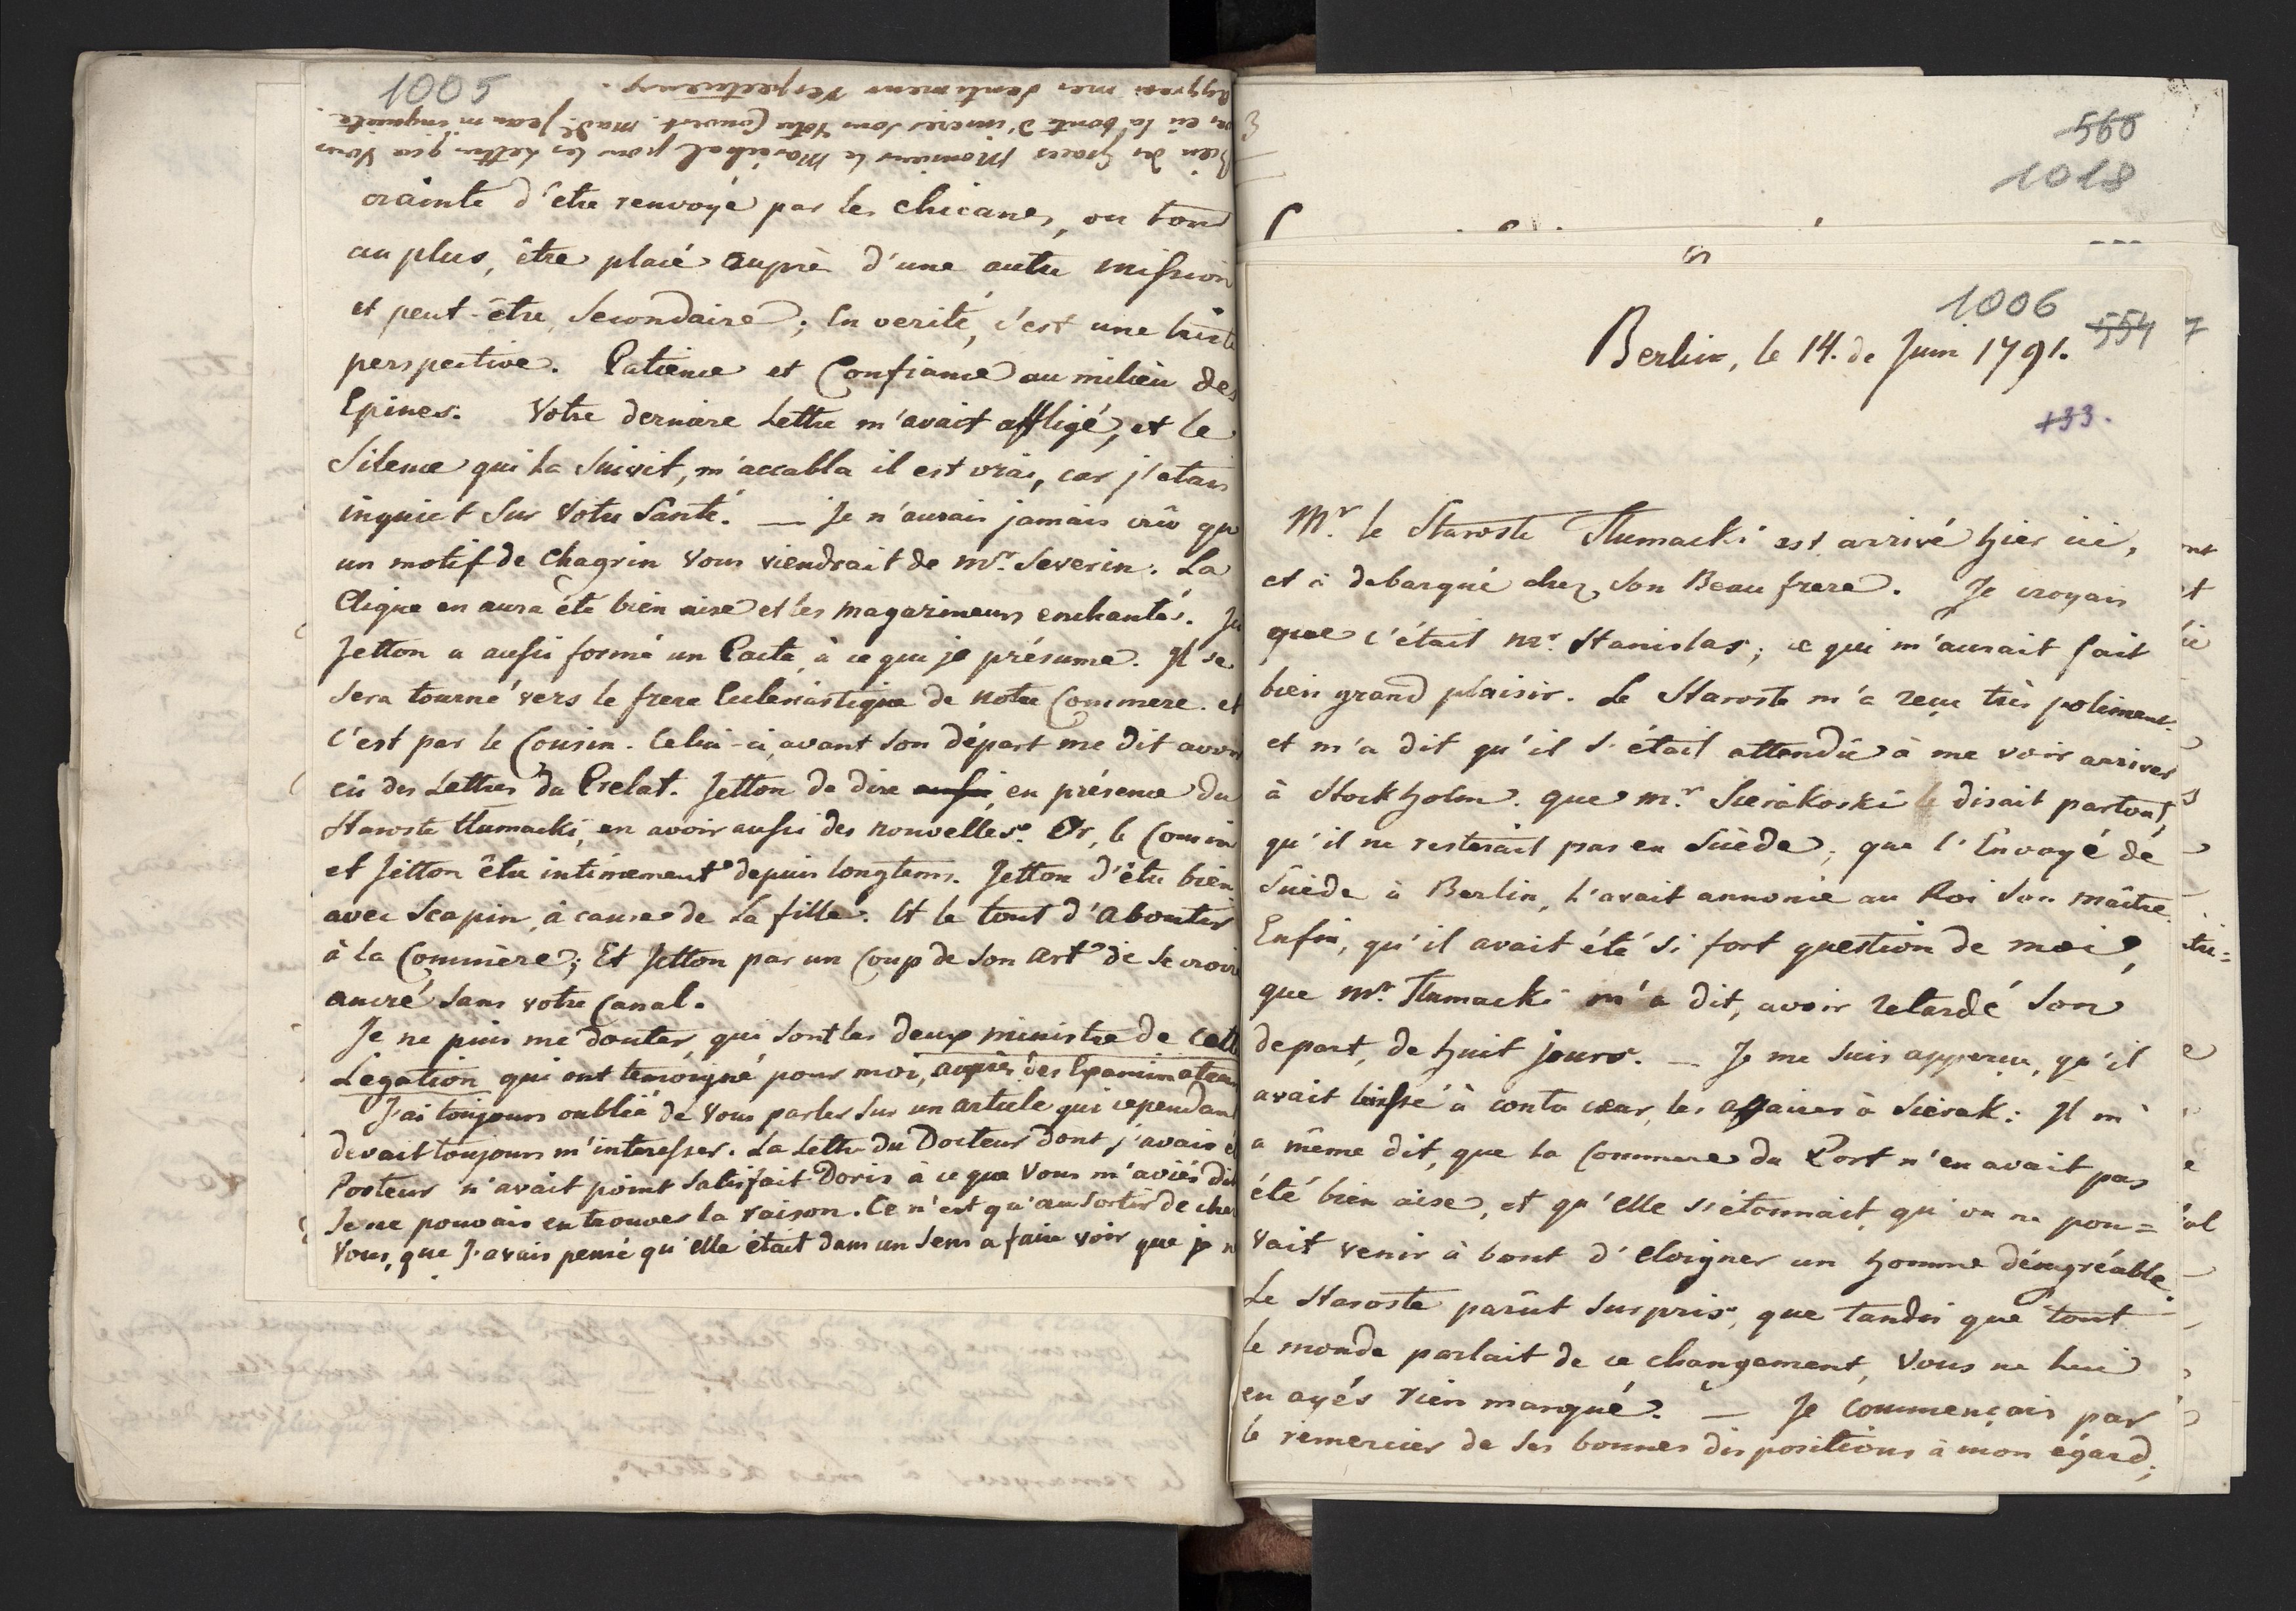 1005
Bien des Graces Monsieur le Marechal pour les Lettres que Vous
avés eû la bonté d'inserer sous Votre Couvert. Made. Jean m'inquiete.
Aggréés mes sentimens respectueux.
crainte d'être renvoyé par les chicanes, ou tout
au plus, être placé auprès d'une autre mission
et peut-être Secondaire; En verité, c'est une triste
perspective. Patience et Confiance au milieu des
Epines. Votre dernière Lettre m'avait affligé, et le
Silence qui la Suivit, m'accabla il est vrai, car j'etais
inquiet Sur Votre Santé. — Je n'aurais jamais crû qu
un motif de Chagrin Vous viendrait de Mr. Severin. La
Clique en aura été bien aise et les magazineurs enchantés.
Jetton a aussi formé un Pacte, à ce que je présume. Il se
Sera tourné vers le frere Ecclesiastique de notre Commere. et
C'est par le Cousin. Celui-ci, avant Son départ me dit avoir
eû des Lettres du Prelat. Jetton de dire aussi, en présence du
Staroste Tlumacki, en avoir aussi des nouvelles. Or, le Cousin
et Jetton être intimement depuis longtems. Jetton d'être bien
avec Scapin, à cause de La fille. Et le tout d'aboutir
à la Commère; Et Jetton par un Coup de Son art de Se croire
ancré Sans votre Canal.
Je ne puis me douter, qui Sont les deux ministre de cette
Legation qui ont temoigné pour moi, auprès des Examinateurs
J'ai toujours oublié de Vous parler Sur un article qui cependant
devait toujours m'interesser. La Lettre du Docteur dont j'avais été
Porteur n'avait point Satisfait Doris à ce que Vous m'aviés dit
Je ne pouvais en trouver la raison. Ce n'est qu'au Sortir de chez
Vous, que J'avais pensé qu'elle était dans un Sens a faire voir que je n
560
1018
1006
554
Berlin, le 14. de Juin 1791.
+33.
Mr. le Staroste Tlumacki est arrivé hier ici,
et à debarqué chez Son Beau frere. Je croyais
que c'était Mr. Stanislas; ce qui m'aurait fait
bien grand plaisir. Le Staroste m'a reçu très poliment
et m'a dit qu'il S'était attendû à me voir arriver
à Stockholm. que Mr. Sierakoski le disait partout,
qu'il ne resterait pas en Suède; que l'Envoyé de
Suède à Berlin, l'avait annoncé au Roi Son maître.
Enfin, qu'il avait été Si fort question de moi,
que Mr. Tlumacki m'a dit, avoir retardé Son
depart, de huit jours. — Je me Suis apperçu, qu'il
avait laissé à contre cœur, les affaires à Sierak: Il m'
a même dit, que la Commere du Port n'en avait pas
été bien aise, et qu'elle S'étonnait, qu'on ne pou=
vait venir à bout d'eloigner un homme désagréable.
Le Staroste parût Surpris, que tandis que tout
le monde parlait de ce changement, Vous ne lui
en ayés rien marqué. — Je commençais par
le remercier de Ses bonnes dispositions à mon égard;